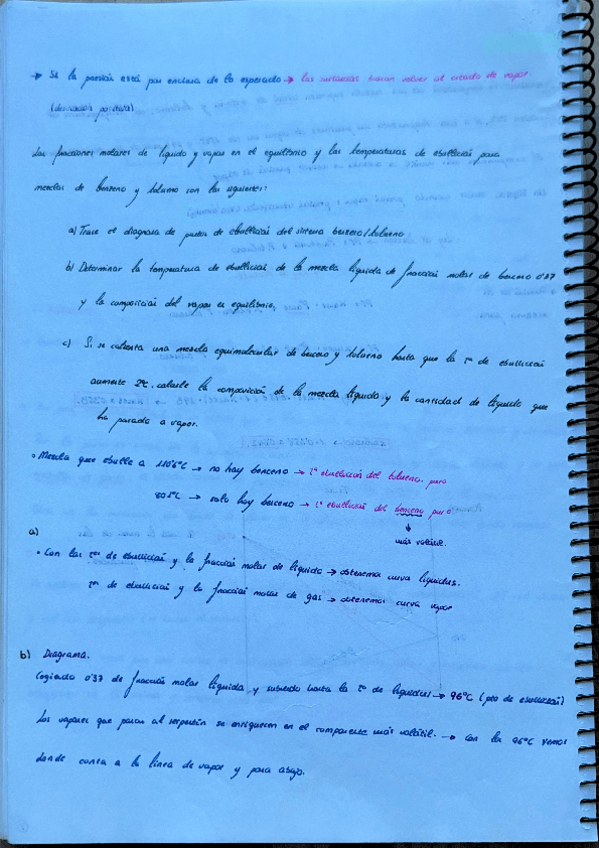 → Si la presión está por encima de lo esperado → las sustancias quieren volver al estado de vapor.
(desviación positiva)
Las fracciones molares de líquido y vapor en el equilibrio y las temperaturas de ebullición para
mezclas de benceno y tolueno son las siguientes:
a) Trace el diagrama de puntos de ebullición del sistema benceno/tolueno
b) Determinar la temperatura de ebullición de la mezcla líquida de fracción molar de benceno 0'37
y la composición del vapor en equilibrio.
c) Si se calienta una mezcla equimolecular de benceno y tolueno hasta que la Tª de ebullición
aumente 2ºC. calcule la composición de la mezcla líquida y la cantidad de líquido que
ha pasado a vapor.
• Mezcla que ebulle a 110'6ºC → no hay benceno → Tª ebullición del tolueno puro
80'1ºC → solo hay benceno → Tª ebullición del benceno puro.
↓
más volátil.
a)
• Con las Tªs de ebullición y la fracción molar de líquido → obtenemos curva líquidus.
Tªs de ebullición y la fracción molar de gas → obtenemos curva vapor
b) Diagrama.
Cogiendo 0'37 de fracción molar líquida y subiendo hasta la Tª de líquidus → 96ºC (pto de ebullición)
Los vapores que pasan al serpentín se enriquecen en el componente más volátil. → con los 96ºC vemos
donde corta a la línea de vapor y para abajo.